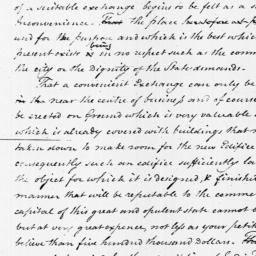 of a suitable exchange begins to be felt as a s
Inconvenience. That the place heretofore as p
used for the purpose and which is the best which
present exists is being in no respect such as the comm
the city or the Dignity of the State demands.
That a convenient Exchange can only be
in the near the centre of business and of course
be erected on Ground which is very valuable
which is already covered with buildings that m
taken down to make room for the new Edifice
consequently such an edifice sufficiently la
the object for which it is designed, & finished
manner that will be reputable to the comme
capital of this great and opulent state cannot
but at very great expence, not less as your petit
believe than five hundred thousand Dollars. Tha